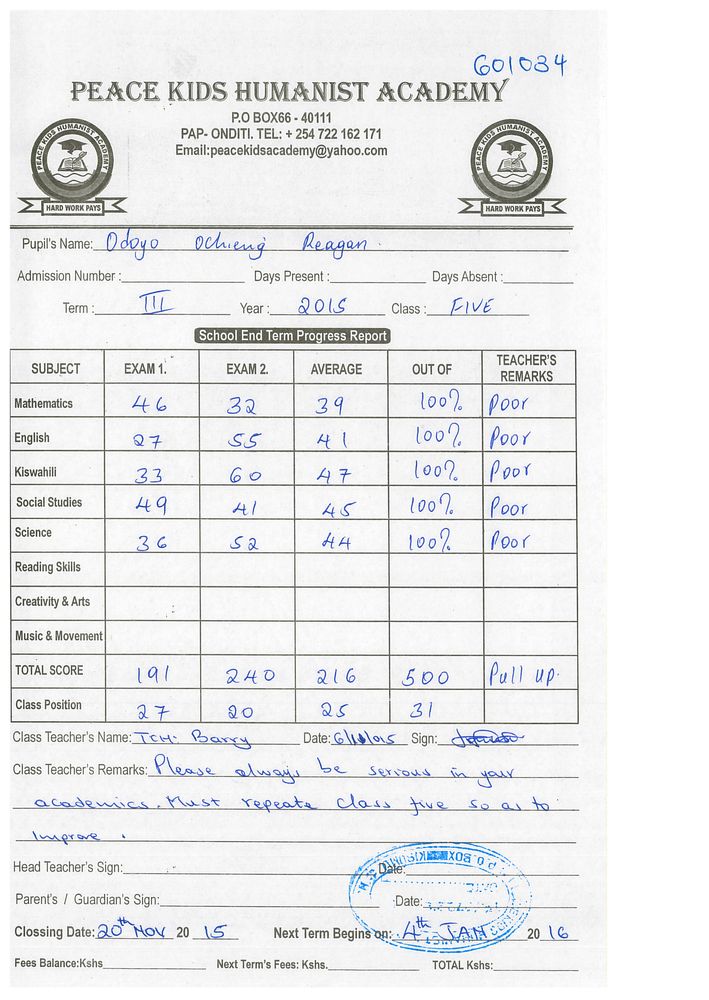 601034
PEACE KIDS HUMANIST ACADEMY
P.O BOX66 - 40111
PAP- ONDITI. TEL: + 254 722 162 171
Email:peacekidsacademy@yahoo.com
PEACE KIDS HUMANIST ACADEMY
HARD WORK PAYS
PEACE KIDS HUMANIST ACADEMY
HARD WORK PAYS
Pupil's Name: Odoyo Ochieng Reagan.
Admission Number : Days Present : Days Absent :
Term : III Year : 2015 Class : FIVE
School End Term Progress Report
SUBJECT EXAM 1. EXAM 2. AVERAGE OUT OF TEACHER'S REMARKS
Mathematics 46 32 39 100% Poor
English 27 55 41 100% Poor
Kiswahili 33 60 47 100% Poor
Social Studies 49 41 45 100% Poor
Science 36 52 44 100% Poor
Reading Skills
Creativity & Arts
Music & Movement
TOTAL SCORE 191 240 216 500 Pull up.
Class Position 27 20 25 31
Class Teacher's Name: TCH. Barry Date: Sign:
Class Teacher's Remarks: Please always be serious in your
academics. Must repeate class five so as to
improve .
Head Teacher's Sign: Date:
Parent's / Guardian's Sign: Date:
P.O. BOX
Clossing Date: 20th NOV 20 15 Next Term Begins on: 4th JAN 20 16
Fees Balance:Kshs Next Term's Fees: Kshs. TOTAL Kshs: